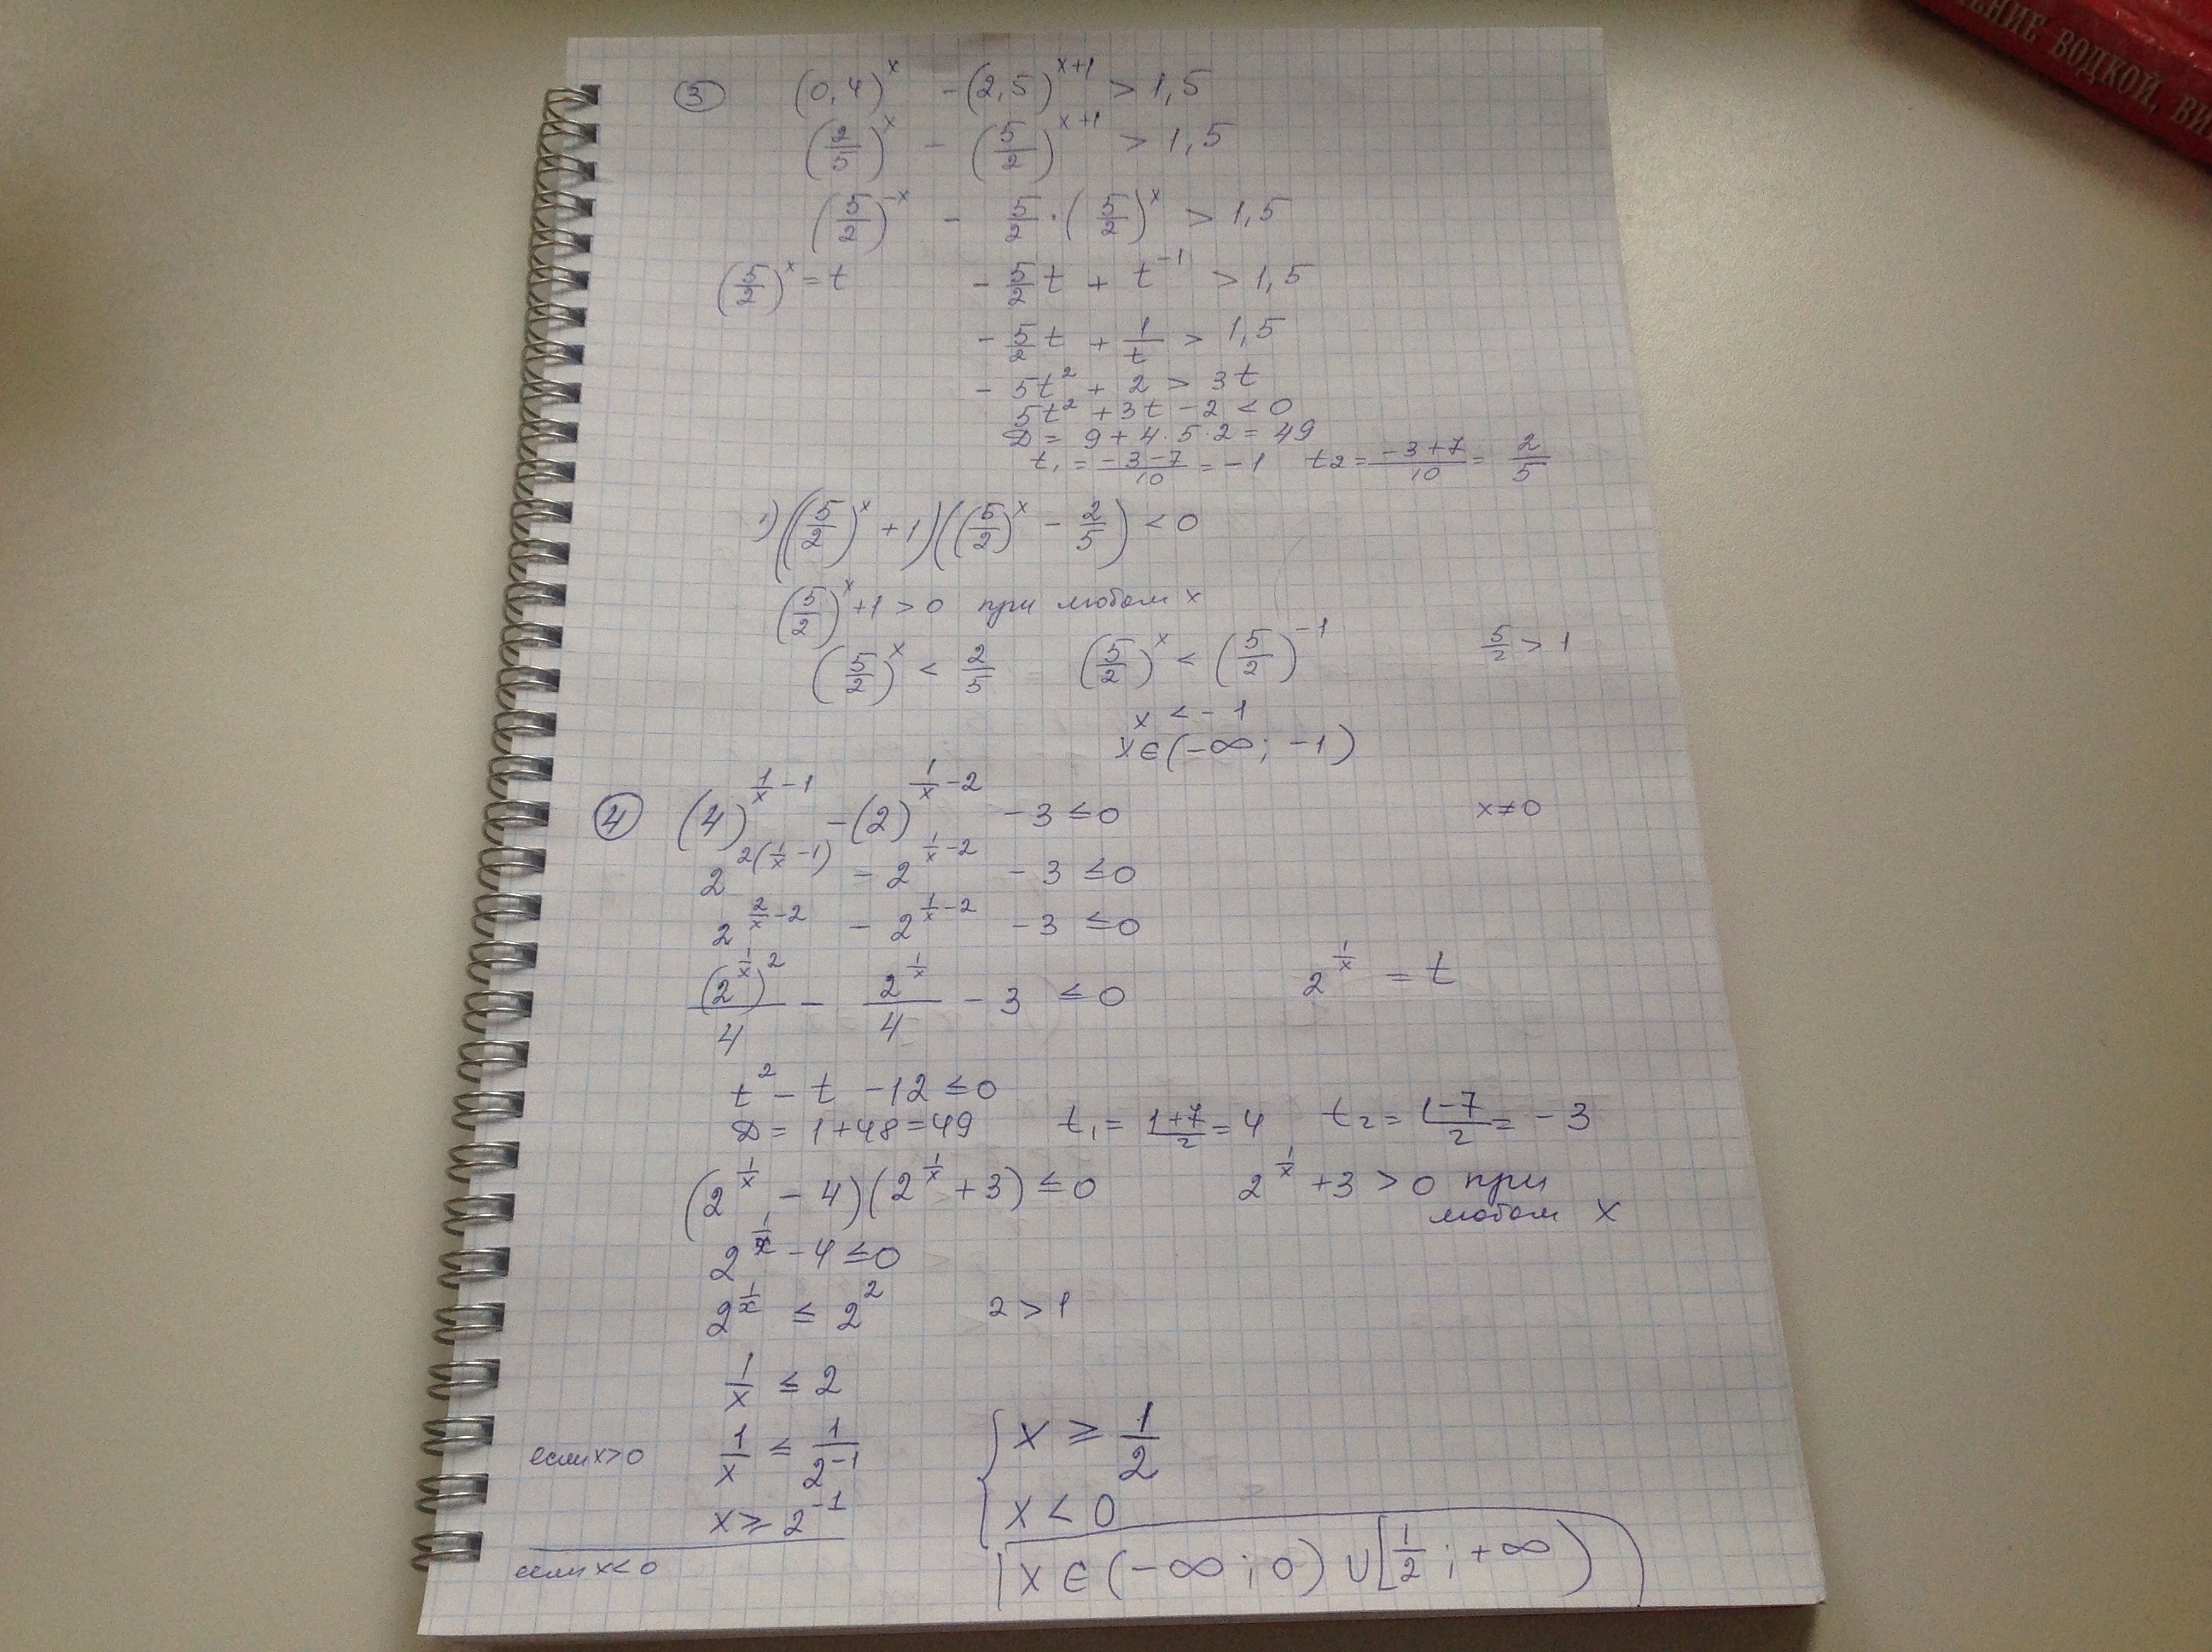 ЕНИЕ ВОДКОЙ, ВИ
③ (0,4)^x - (2,5)^{x+1} > 1,5
(2/5)^x - (5/2)^{x+1} > 1,5
(5/2)^{-x} - 5/2 · (5/2)^x > 1,5
(5/2)^x = t - 5/2 t + t^{-1} > 1,5
- 5/2 t + 1/t > 1,5
- 5t² + 2 > 3t
5t² + 3t - 2 < 0
D = 9 + 4·5·2 = 49
t₁ = (-3-7)/10 = -1 t₂ = (-3+7)/10 = 2/5
1) ((5/2)^x + 1)((5/2)^x - 2/5) < 0
(5/2)^x + 1 > 0 при любом x
(5/2)^x < 2/5 (5/2)^x < (5/2)^{-1} 5/2 > 1
x < -1
x ∈ (-∞; -1)
④ (4)^{1/x - 1} - (2)^{1/x - 2} - 3 ≤ 0 x ≠ 0
2^{2(1/x - 1)} - 2^{1/x - 2} - 3 ≤ 0
2^{2/x - 2} - 2^{1/x - 2} - 3 ≤ 0
(2^{1/x})²/4 - 2^{1/x}/4 - 3 ≤ 0 2^{1/x} = t
t² - t - 12 ≤ 0
D = 1 + 48 = 49 t₁ = (1+7)/2 = 4 t₂ = (1-7)/2 = -3
(2^{1/x} - 4)(2^{1/x} + 3) ≤ 0 2^{1/x} + 3 > 0 при
любом x
2^{1/x} - 4 ≤ 0
2^{1/x} ≤ 2² 2 > 1
1/x ≤ 2
если x > 0 1/x ≤ 1/2^{-1} { x ≥ 1/2
x ≥ 2^{-1} x < 0
если x < 0 x ∈ (-∞; 0) ∪ [1/2; +∞)